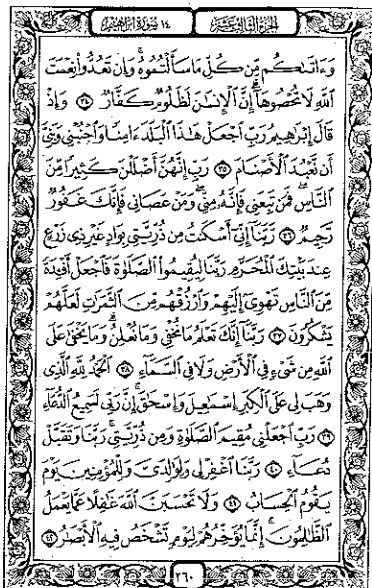 الجزء الثالث عشر
١٤ سورة إبراهيم
وَءَاتَىٰكُم مِّن كُلِّ مَا سَأَلْتُمُوهُ ۚ وَإِن تَعُدُّوا۟ نِعْمَتَ
ٱللَّهِ لَا تُحْصُوهَآ ۗ إِنَّ ٱلْإِنسَٰنَ لَظَلُومٌ كَفَّارٌ ٣٤ وَإِذْ
قَالَ إِبْرَٰهِيمُ رَبِّ ٱجْعَلْ هَٰذَا ٱلْبَلَدَ ءَامِنًا وَٱجْنُبْنِى وَبَنِىَّ
أَن نَّعْبُدَ ٱلْأَصْنَامَ ٣٥ رَبِّ إِنَّهُنَّ أَضْلَلْنَ كَثِيرًا مِّنَ
ٱلنَّاسِ ۖ فَمَن تَبِعَنِى فَإِنَّهُۥ مِنِّى ۖ وَمَنْ عَصَانِى فَإِنَّكَ غَفُورٌ
رَّحِيمٌ ٣٦ رَّبَّنَآ إِنِّىٓ أَسْكَنتُ مِن ذُرِّيَّتِى بِوَادٍ غَيْرِ ذِى زَرْعٍ
عِندَ بَيْتِكَ ٱلْمُحَرَّمِ رَبَّنَا لِيُقِيمُوا۟ ٱلصَّلَوٰةَ فَٱجْعَلْ أَفْـِٔدَةً
مِّنَ ٱلنَّاسِ تَهْوِىٓ إِلَيْهِمْ وَٱرْزُقْهُم مِّنَ ٱلثَّمَرَٰتِ لَعَلَّهُمْ
يَشْكُرُونَ ٣٧ رَبَّنَآ إِنَّكَ تَعْلَمُ مَا نُخْفِى وَمَا نُعْلِنُ ۗ وَمَا يَخْفَىٰ عَلَى
ٱللَّهِ مِن شَىْءٍ فِى ٱلْأَرْضِ وَلَا فِى ٱلسَّمَآءِ ٣٨ ٱلْحَمْدُ لِلَّهِ ٱلَّذِى
وَهَبَ لِى عَلَى ٱلْكِبَرِ إِسْمَٰعِيلَ وَإِسْحَٰقَ ۚ إِنَّ رَبِّى لَسَمِيعُ ٱلدُّعَآءِ
٣٩ رَبِّ ٱجْعَلْنِى مُقِيمَ ٱلصَّلَوٰةِ وَمِن ذُرِّيَّتِى ۚ رَبَّنَا وَتَقَبَّلْ
دُعَآءِ ٤٠ رَبَّنَا ٱغْفِرْ لِى وَلِوَٰلِدَىَّ وَلِلْمُؤْمِنِينَ يَوْمَ
يَقُومُ ٱلْحِسَابُ ٤١ وَلَا تَحْسَبَنَّ ٱللَّهَ غَٰفِلًا عَمَّا يَعْمَلُ
ٱلظَّٰلِمُونَ ۚ إِنَّمَا يُؤَخِّرُهُمْ لِيَوْمٍ تَشْخَصُ فِيهِ ٱلْأَبْصَٰرُ ٤٢
٢٦٠